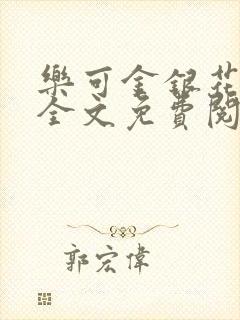 樂可金銀花
全文免費閱
郭宏偉